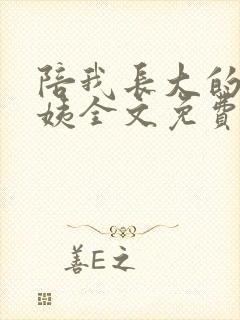 陪我長大的
姨全文免費
善E之